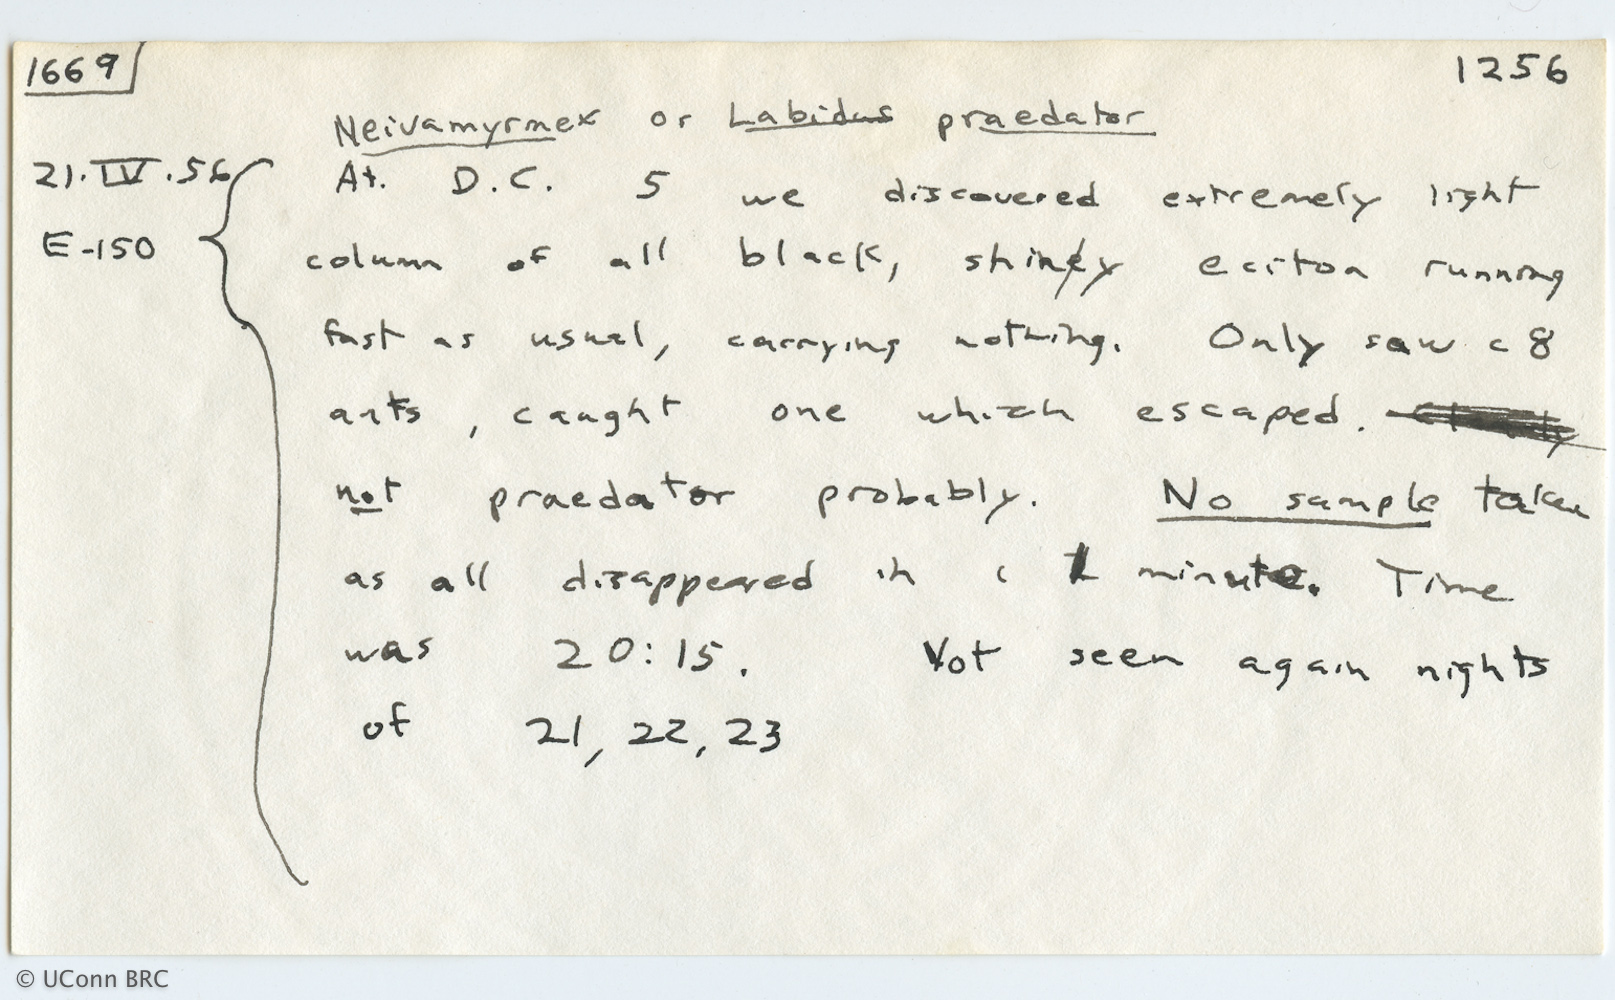 1669
1256
Neivamyrmex or Labidus praedator
21.IV.56
At. D.C. 5 we discovered extremely light
E-150
column of all black, shiny eciton running
fast as usual, carrying nothing. Only saw c 8
ants, caught one which escaped.
not praedator probably. No sample taken
as all disappeared in c 1 minute. Time
was 20:15. Not seen again nights
of 21, 22, 23
© UConn BRC